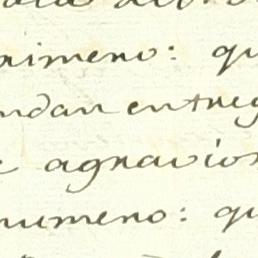 nimeno: qu
ndan entreg
e agravios
numeno: qu